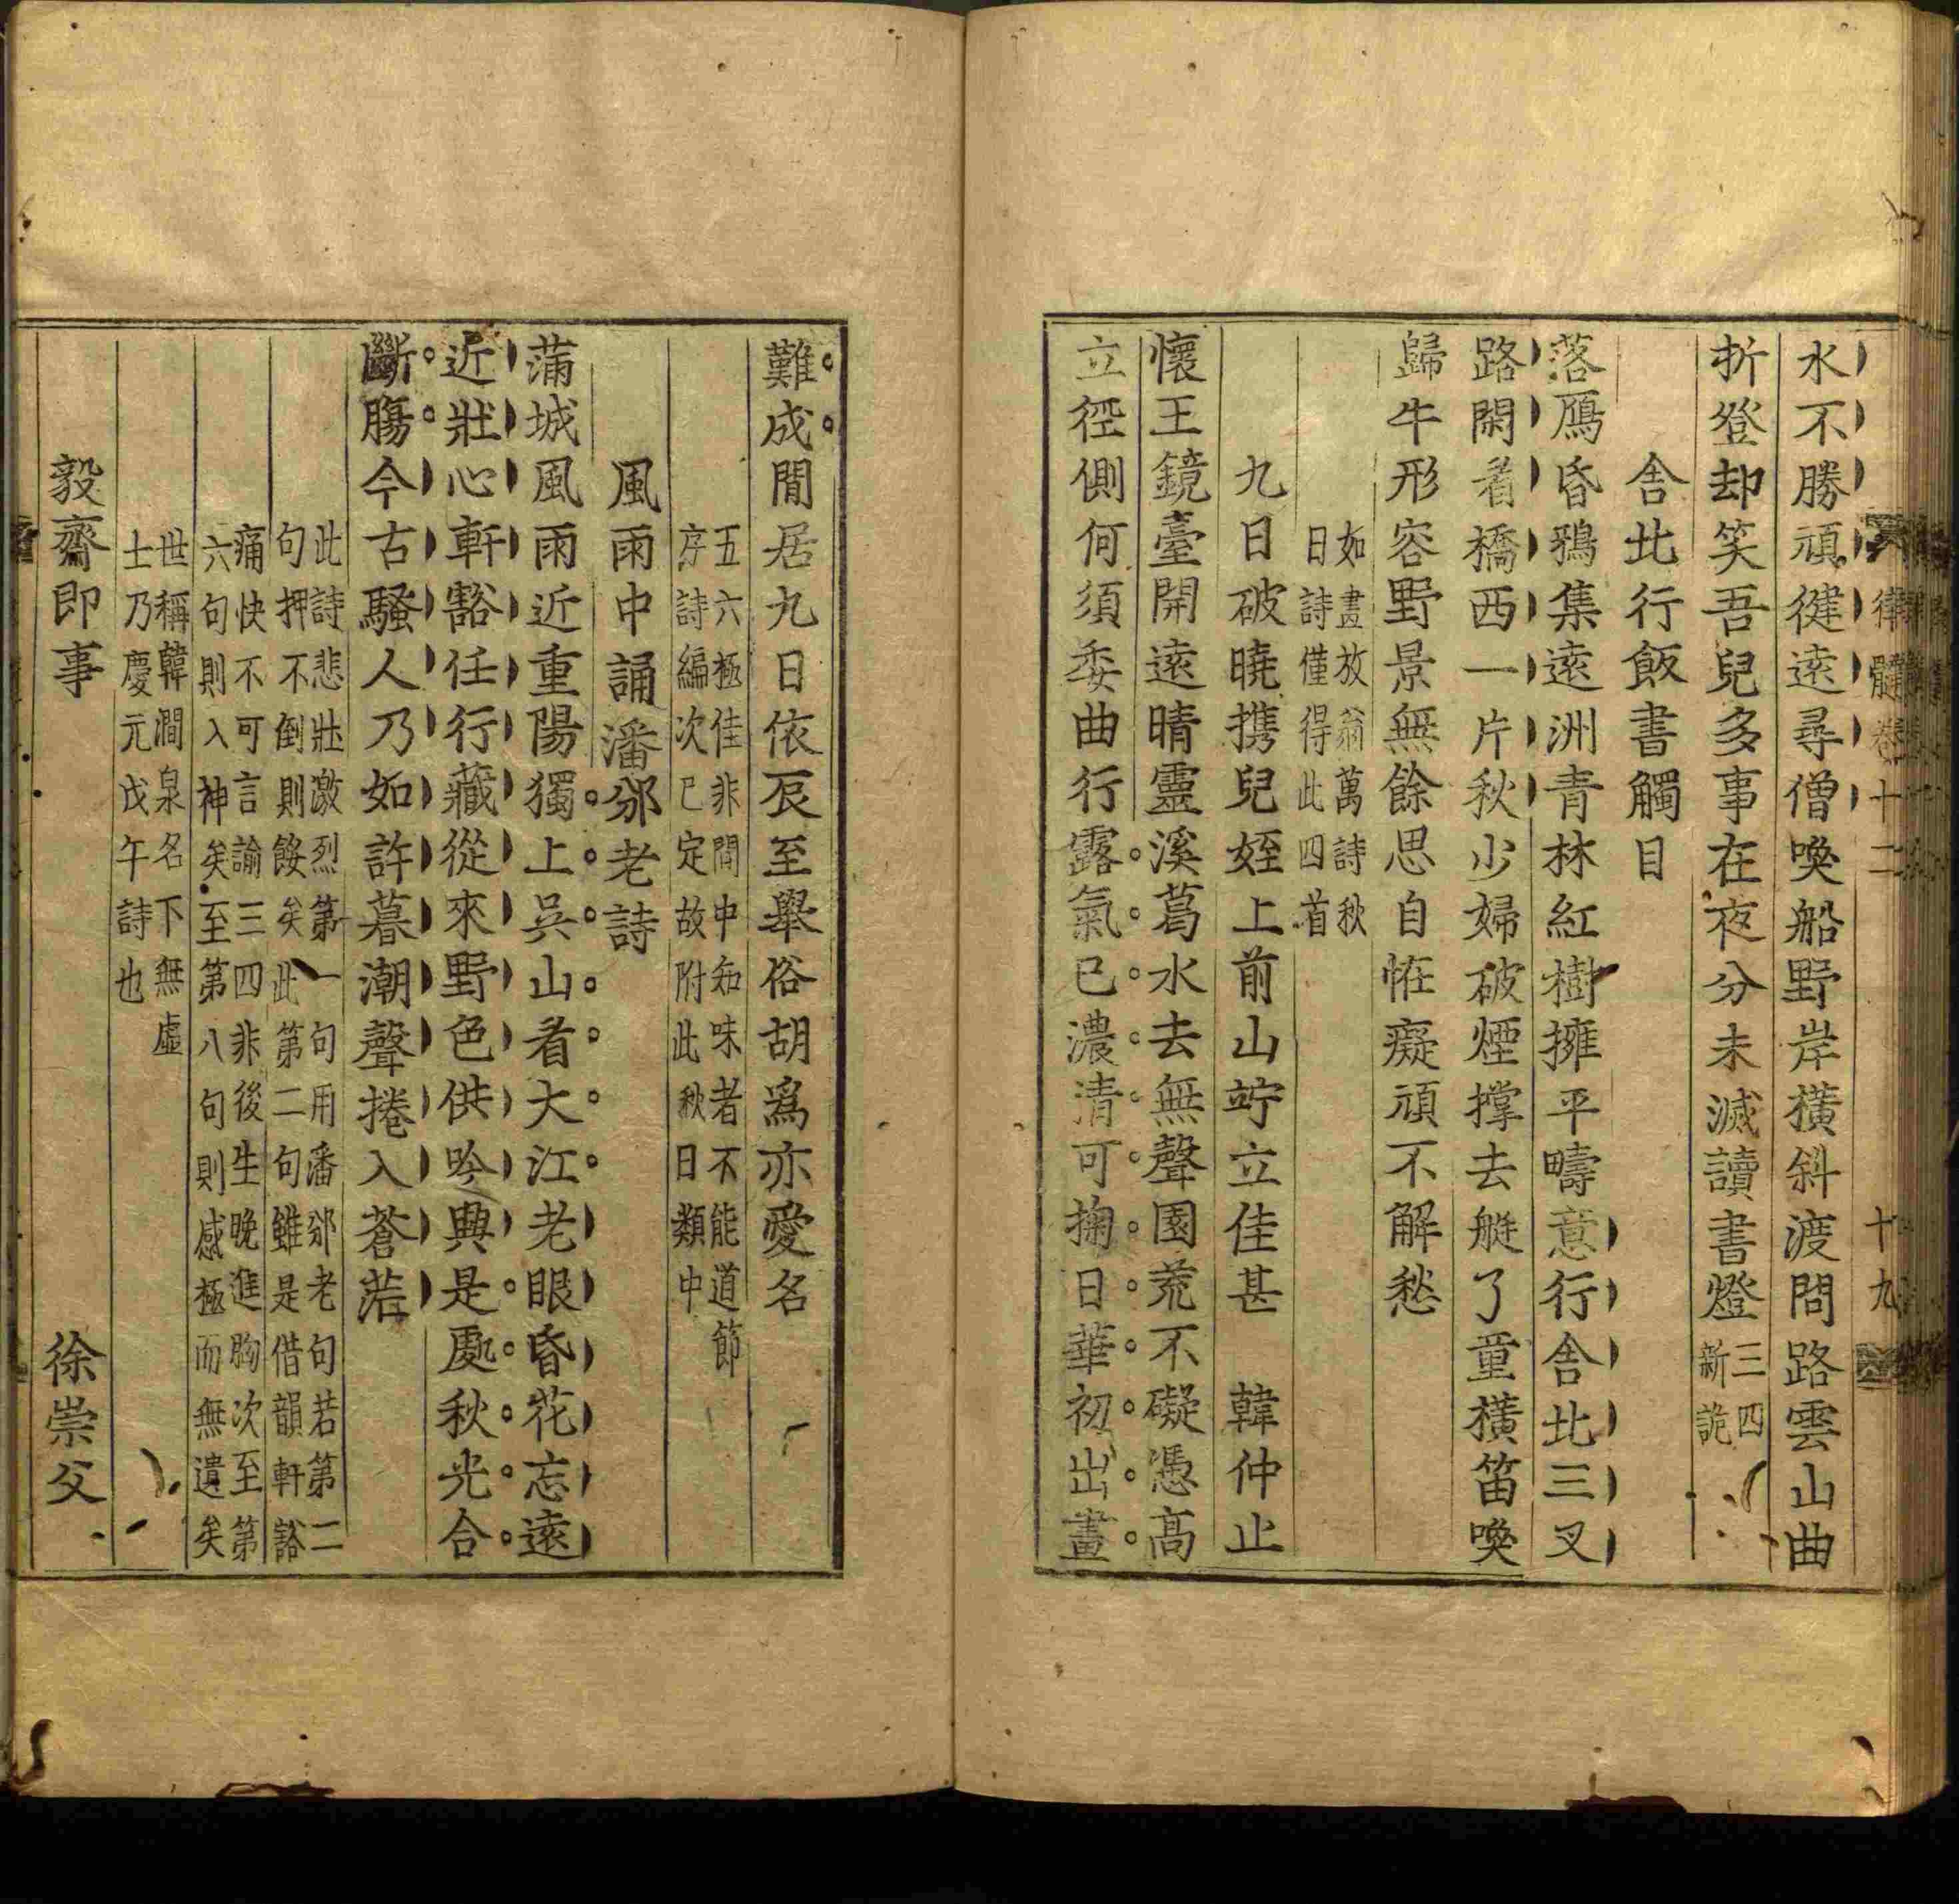 律髓卷十二 十九
水不勝頑健遠尋僧喚船野岸橫斜渡問路雲山曲
折登却笑吾兒多事在夜分未滅讀書燈三四新詭
舍北行飯書觸目
落鴈昏鴉集遠洲青林紅樹擁平疇意行舍北三叉
路閑着橋西一片秋少婦破煙撑去艇了童橫笛喚
歸牛形容野景無餘思自恠癡頑不解愁
如畫放翁萬詩秋
日詩僅得此四首
九日破曉携兒姪上前山竚立佳甚 韓仲止
懷王鏡臺開遠晴靈溪葛水去無聲園荒不礙憑高
立徑側何須委曲行露氣已濃清可掬日華初出畫
難成閒居九日依辰至舉俗胡爲亦愛名
五六極佳非閒中知味者不能道節
序詩編次已定故附此秋日類中
風雨中誦潘邠老詩
蒲城風雨近重陽獨上吳山看大江老眼昏花忘遠
近壯心軒豁任行藏從來野色供吟興是處秋光合
斷膓今古騷人乃如許暮潮聲捲入蒼茫
此詩悲壯激烈第一句用潘邠老句若第二
句押不倒則餒矣此第二句雖是借韻軒豁
痛快不可言諭三四非後生晚進胸次至第
六句則入神矣至第八句則感極而無遺矣
世稱韓澗泉名下無虛
士乃慶元戊午詩也
毅齋即事 徐崇父